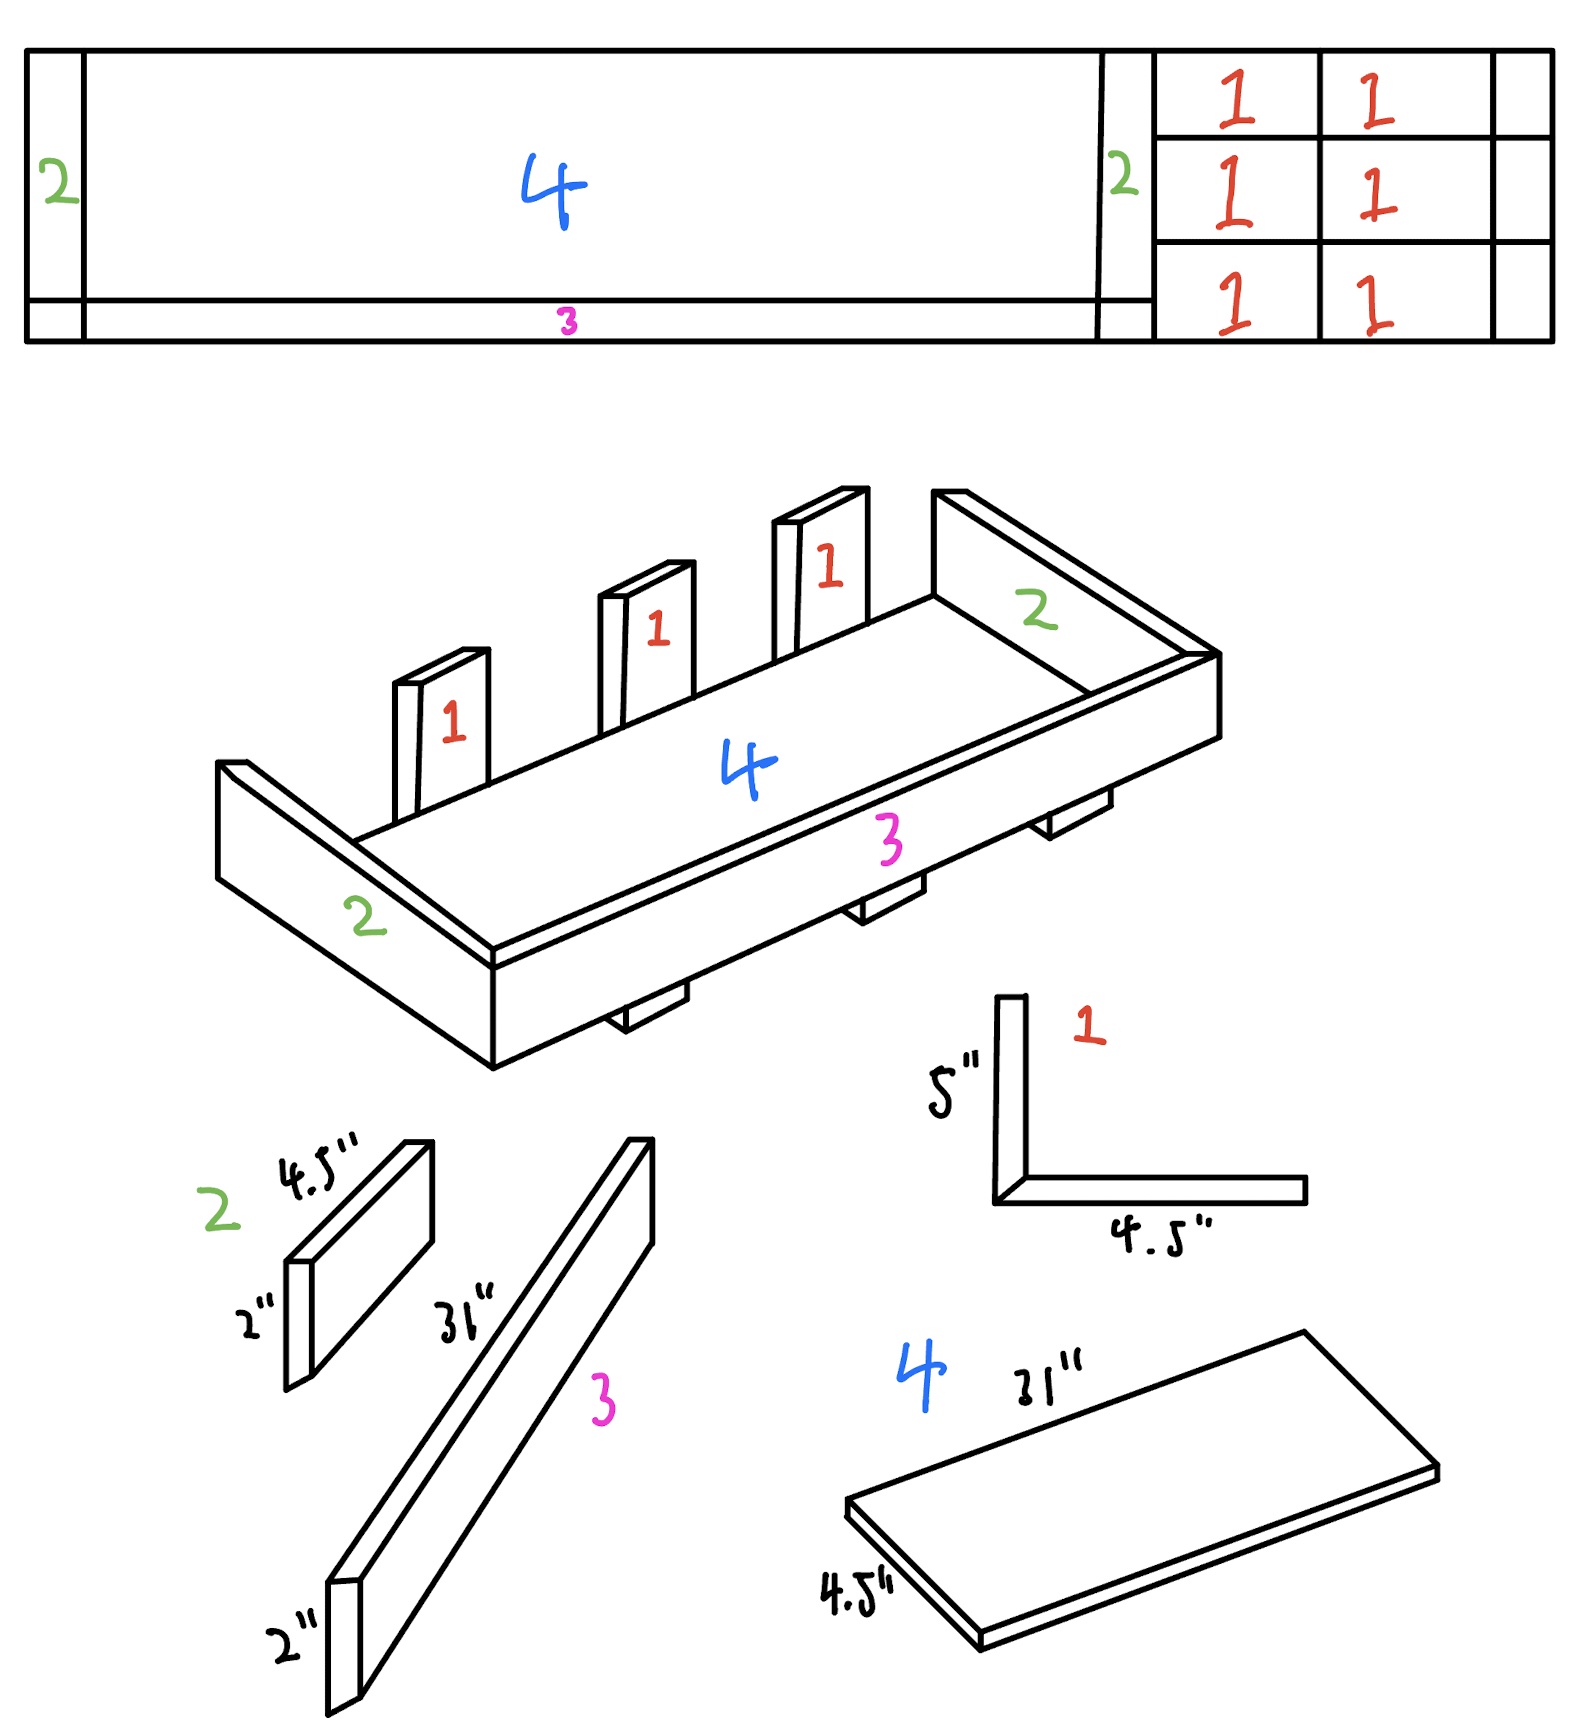 2 4 2 1 1
1 1
3 1 1
1
1
1
2
4
3
2
1
5"
4.5"
2
4.5"
2"
31"
3
2"
4
31"
4.5"